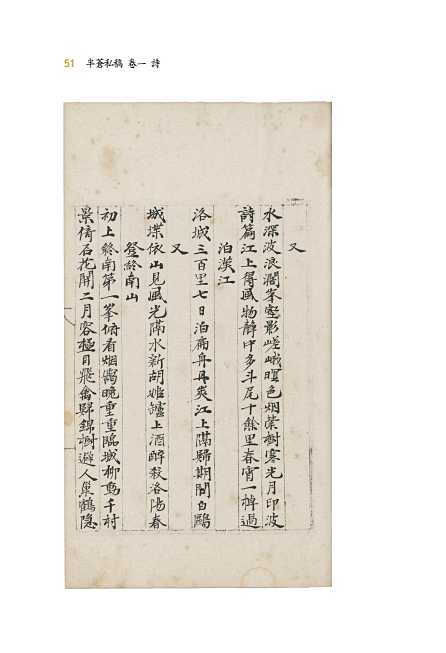 51 半蒼私稿 卷一 詩
又
水深波浪濶峯密影嵯峨暝色烟榮樹寒光月印波
詩篇江上得風物靜中多斗尾十餘里春宵一棹過
泊漢江
洛城三百里七日泊扁舟再爽江上隔歸期閒白鷗
又
城堞依山見風光隔水新胡姬罏上酒醉殺洛陽春
登終南山
初上終南第一峯俯看烟靄晚重重臨城柳夐千村
景倚石花開二月容極目飛禽歸錦樹避人巢鶴隱